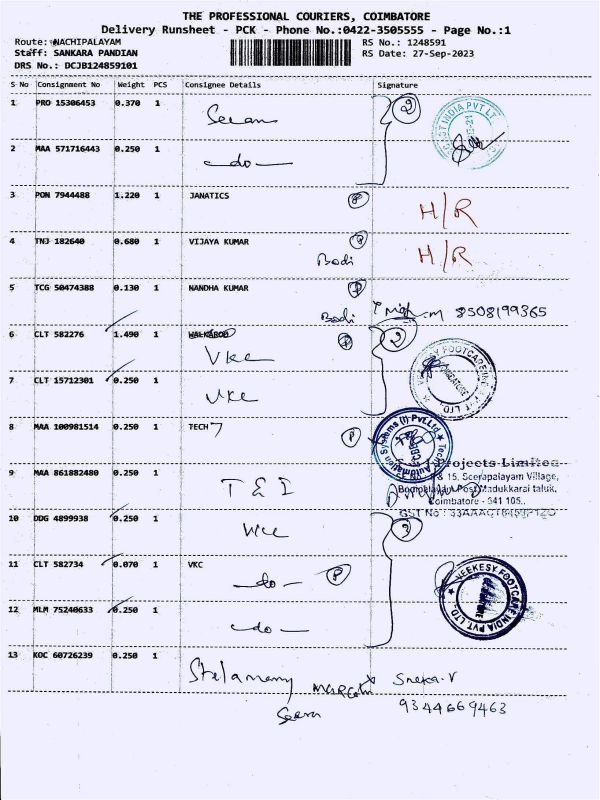 THE PROFESSIONAL COURIERS, COIMBATORE
Delivery Runsheet - PCK - Phone No.:0422-3505555 - Page No.:1
Route: NACHIPALAYAM RS No.: 1248591
Staff: SANKARA PANDIAN RS Date: 27-Sep-2023
DRS No.: DCJB124859101
S No Consignment No Weight PCS Consignee Details Signature
1 PRO 15306453 0.370 1 2
2 MAA 571716443 0.250 1 do
3 PON 7944488 1.220 1 JANATICS P H/R
4 TNJ 182640 0.680 1 VIJAYA KUMAR P H/R
Bodi
5 TCG 50474388 0.130 1 NANDHA KUMAR P
Bodi 8508199365
6 CLT 582276 1.490 1 WALKAROO P 2
VKC
7 CLT 15712301 0.250 1 VKC
8 MAA 100981514 0.250 1 TECH P
Tech Automation Systems (I) Pvt.Ltd
9 MAA 861882480 0.250 1 Projects Limited
& 15, Seerapalayam Village,
T & I
Coimbatore - 641 105.
10 DDG 4899938 0.250 1 VKC 3
11 CLT 582734 0.070 1 VKC
do P
VEEKESY FOOTCARE INDIA PVT. LTD.
12 MLM 75240633 0.250 1 do
13 KOC 60726239 0.250 1
Sneka.V
9344669463